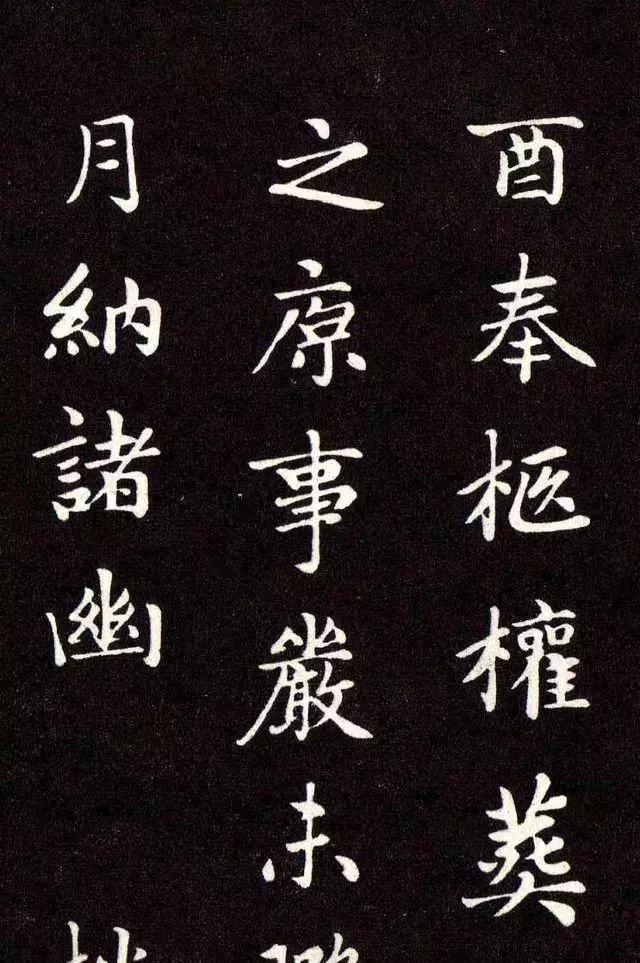 酉奉柩權葬
之原事嚴未
月納諸幽